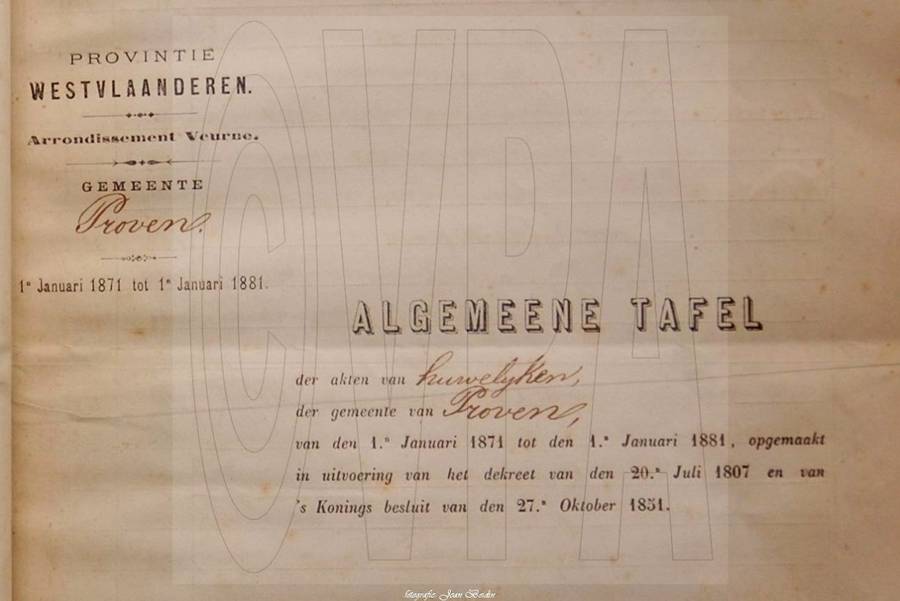 PROVINTIE
WESTVLAANDEREN.
Arrondissement Veurne.
GEMEENTE
Proven.
1ⁿ Januari 1871 tot 1ⁿ Januari 1881.
ALGEMEENE TAFEL
der akten van huwelyken,
der gemeente van Proven,
van den 1.ⁿ Januari 1871 tot den 1.ⁿ Januari 1881, opgemaakt
in uitvoering van het dekreet van den 20.ⁿ Juli 1807 en van
's Konings besluit van den 27.ⁿ Oktober 1851.
CVPA
fotografie: Jean Berdin